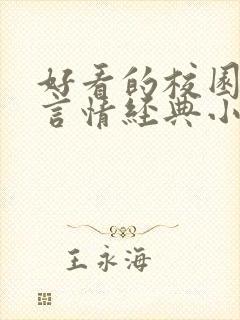 好看的校园
言情经典小
王永海